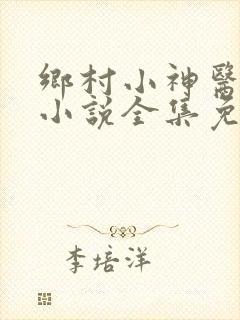 鄉村小神醫
小説全集免
李培洋